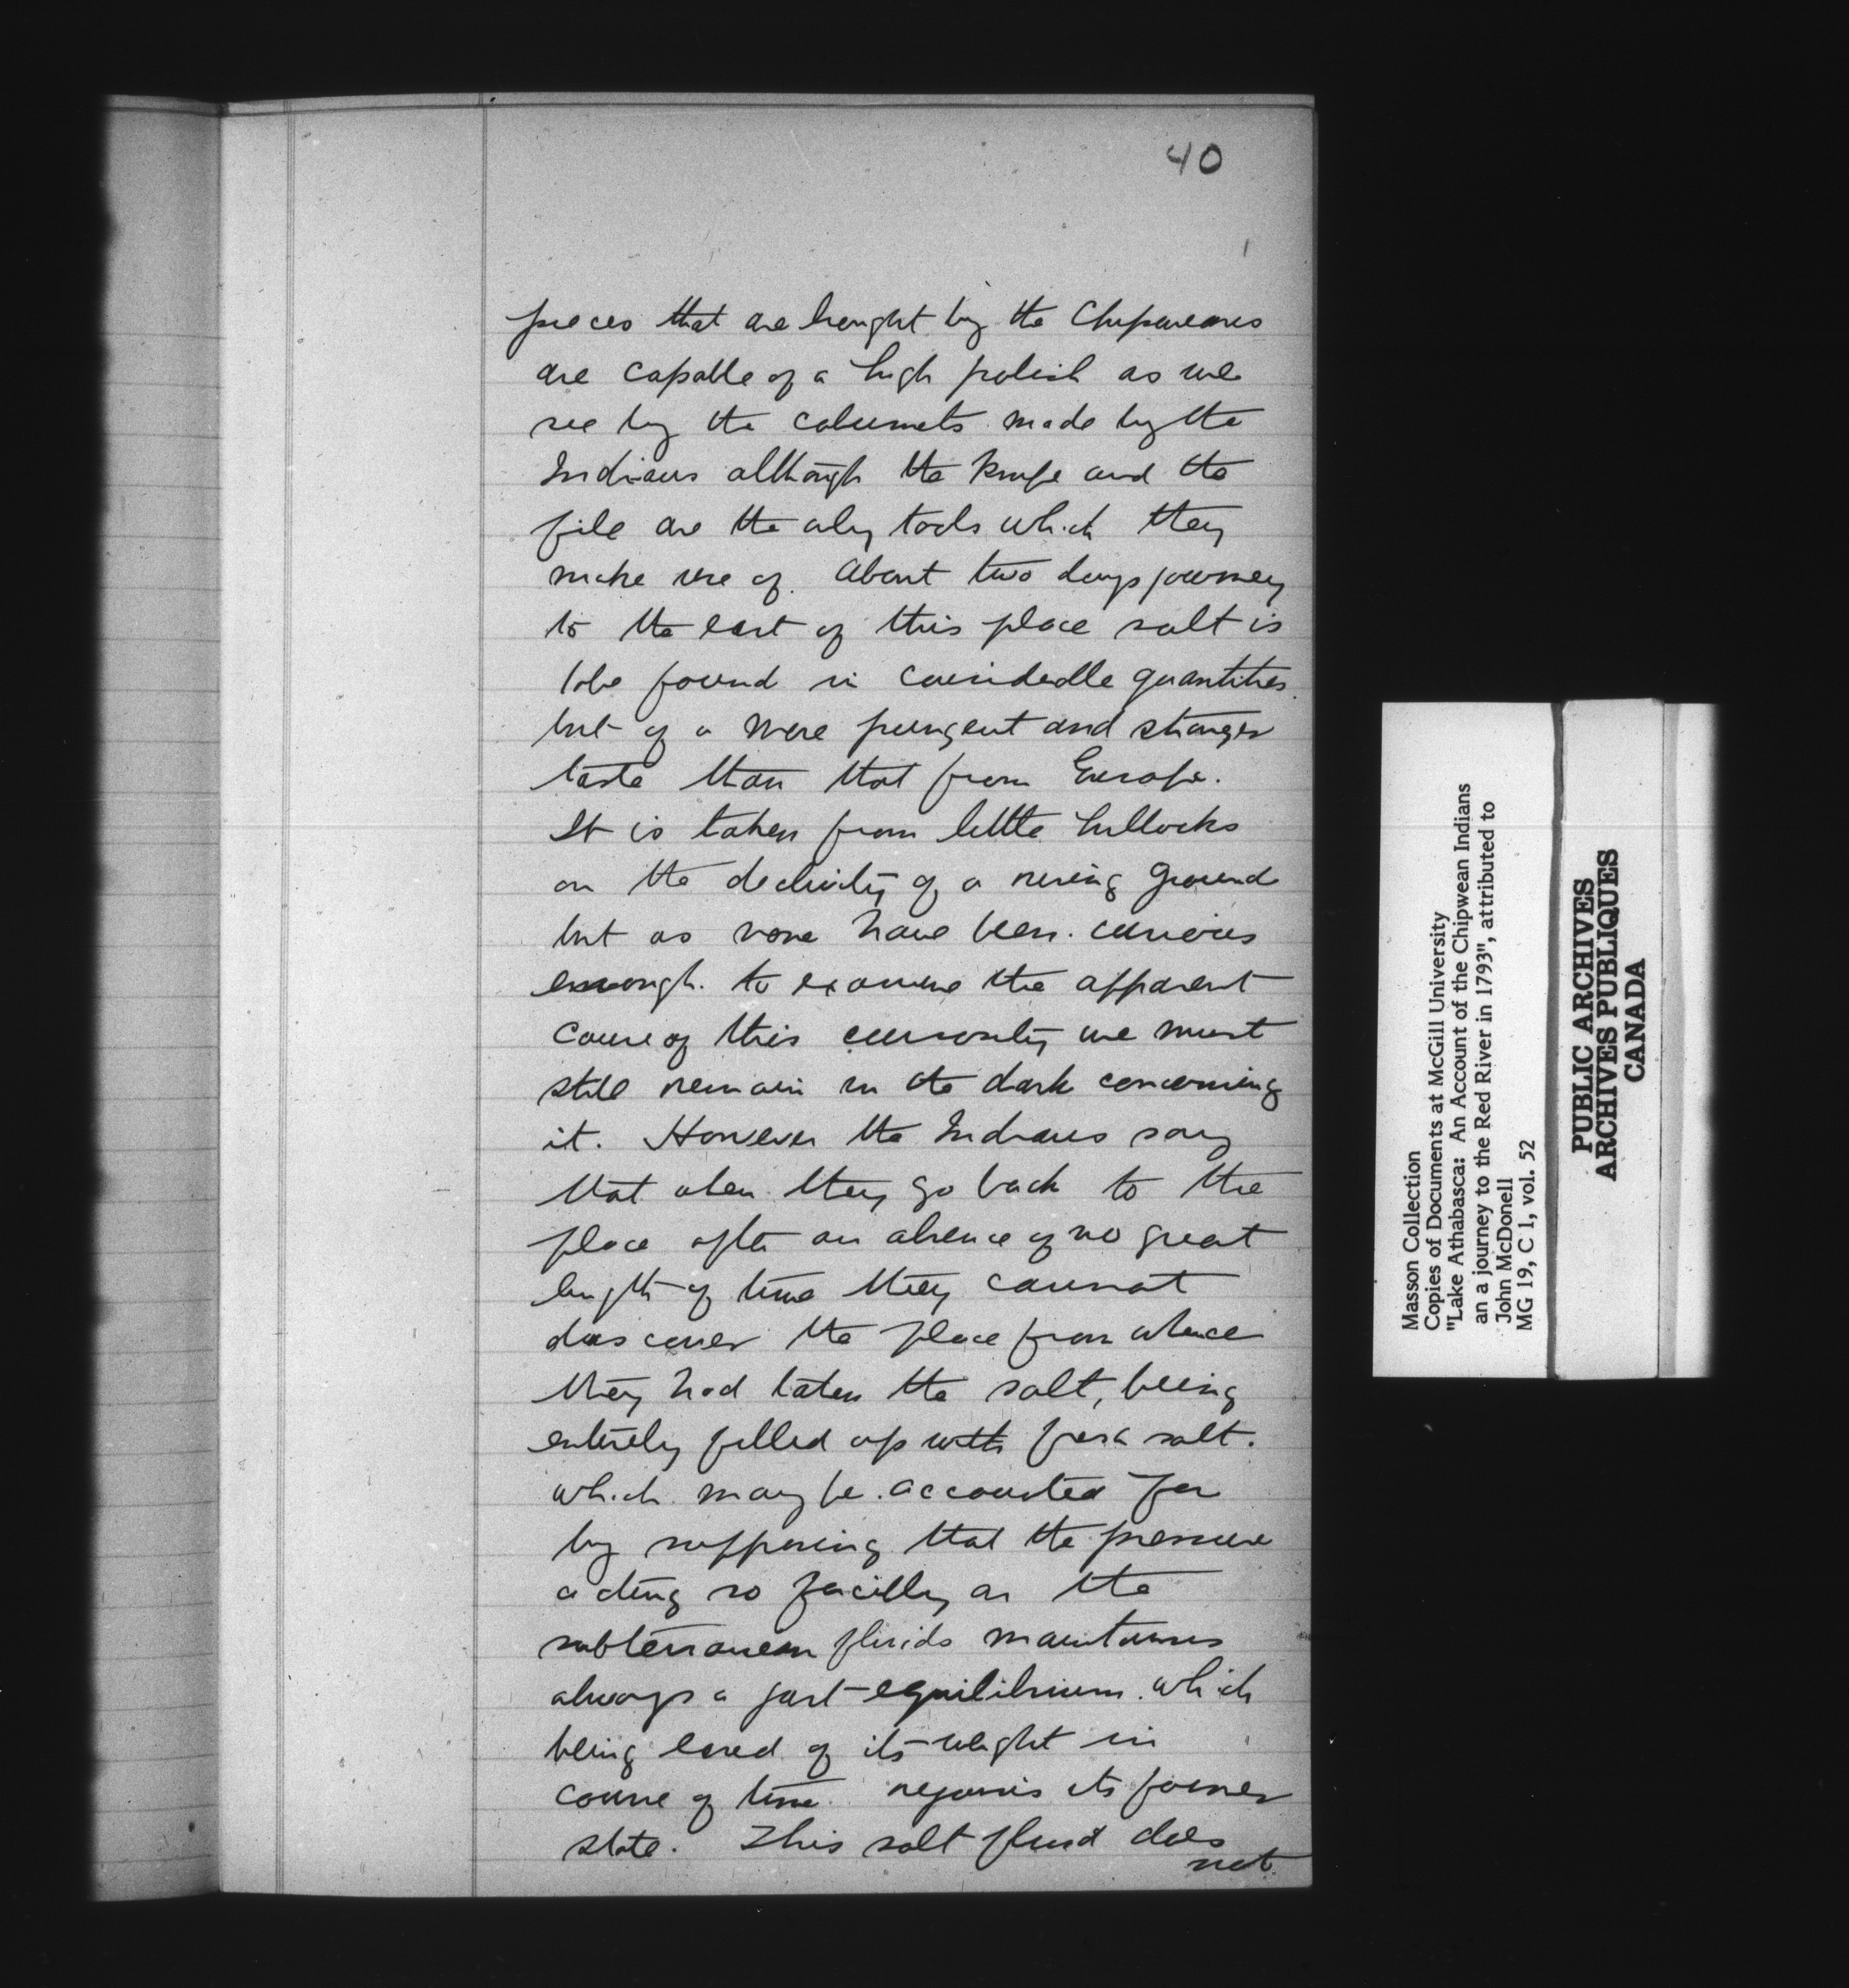 40
pieces that are brought by the Chipweans
are capable of a high polish as we
see by the calumets made by the
Indians although the knife and the
file are the only tools which they
make use of. About two days journey
to the east of this place salt is
to be found in considerable quantities
but of a more pungent and stronger
taste than that from Europe.
It is taken from little hillocks
on the declivity of a rising ground
but as none have been curious
enough to examine the apparent
cause of this curiosity we must
still remain in the dark concerning
it. However the Indians say
that when they go back to the
place after an absence of no great
length of time they cannot
discover the place from whence
they had taken the salt, being
entirely filled up with fresh salt.
which may be accounted for
by supposing that the pressure
acting so facilly on the
subterranean fluids maintains
always a just equilibrium which
being eased of its weight in
course of time regains its former
state. This salt fluid does
not
Masson Collection
Copies of Documents at McGill University
"Lake Athabasca: An Account of the Chipwean Indians
an a journey to the Red River in 1793", attributed to
John McDonell
MG 19, C 1, vol. 52
PUBLIC ARCHIVES
ARCHIVES PUBLIQUES
CANADA